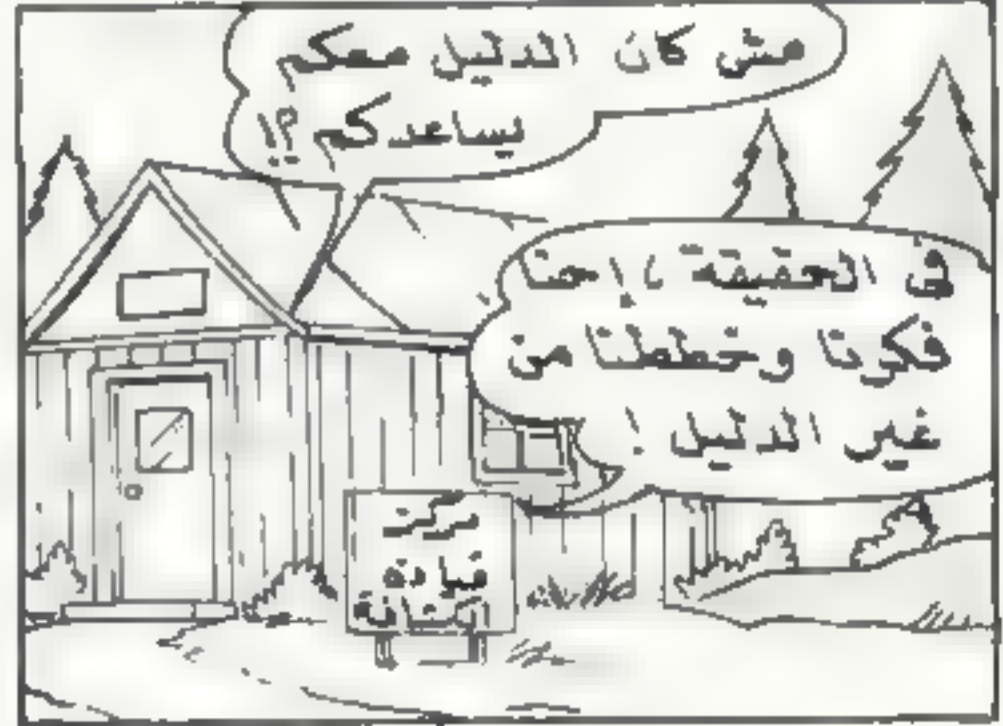 مش كان الدليل معكم
يساعدكم؟!
في الحقيقة، إحنا
فكرنا وخططنا من
غير الدليل!
مركز
قيادة
الكشافة